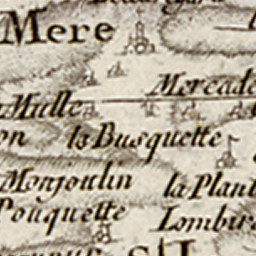 Mere
Mercade
Mulle
la Busquette
Monjoulin
la Plant
Pouquette
Lombir